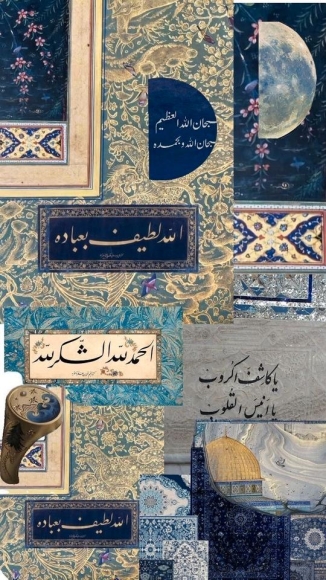 سبحان الله العظيم
سبحان الله وبحمده
الله لطيف بعباده
الحمد لله الشكر لله
يا كاشف الكروب
يا انيس القلوب
الله لطيف بعباده